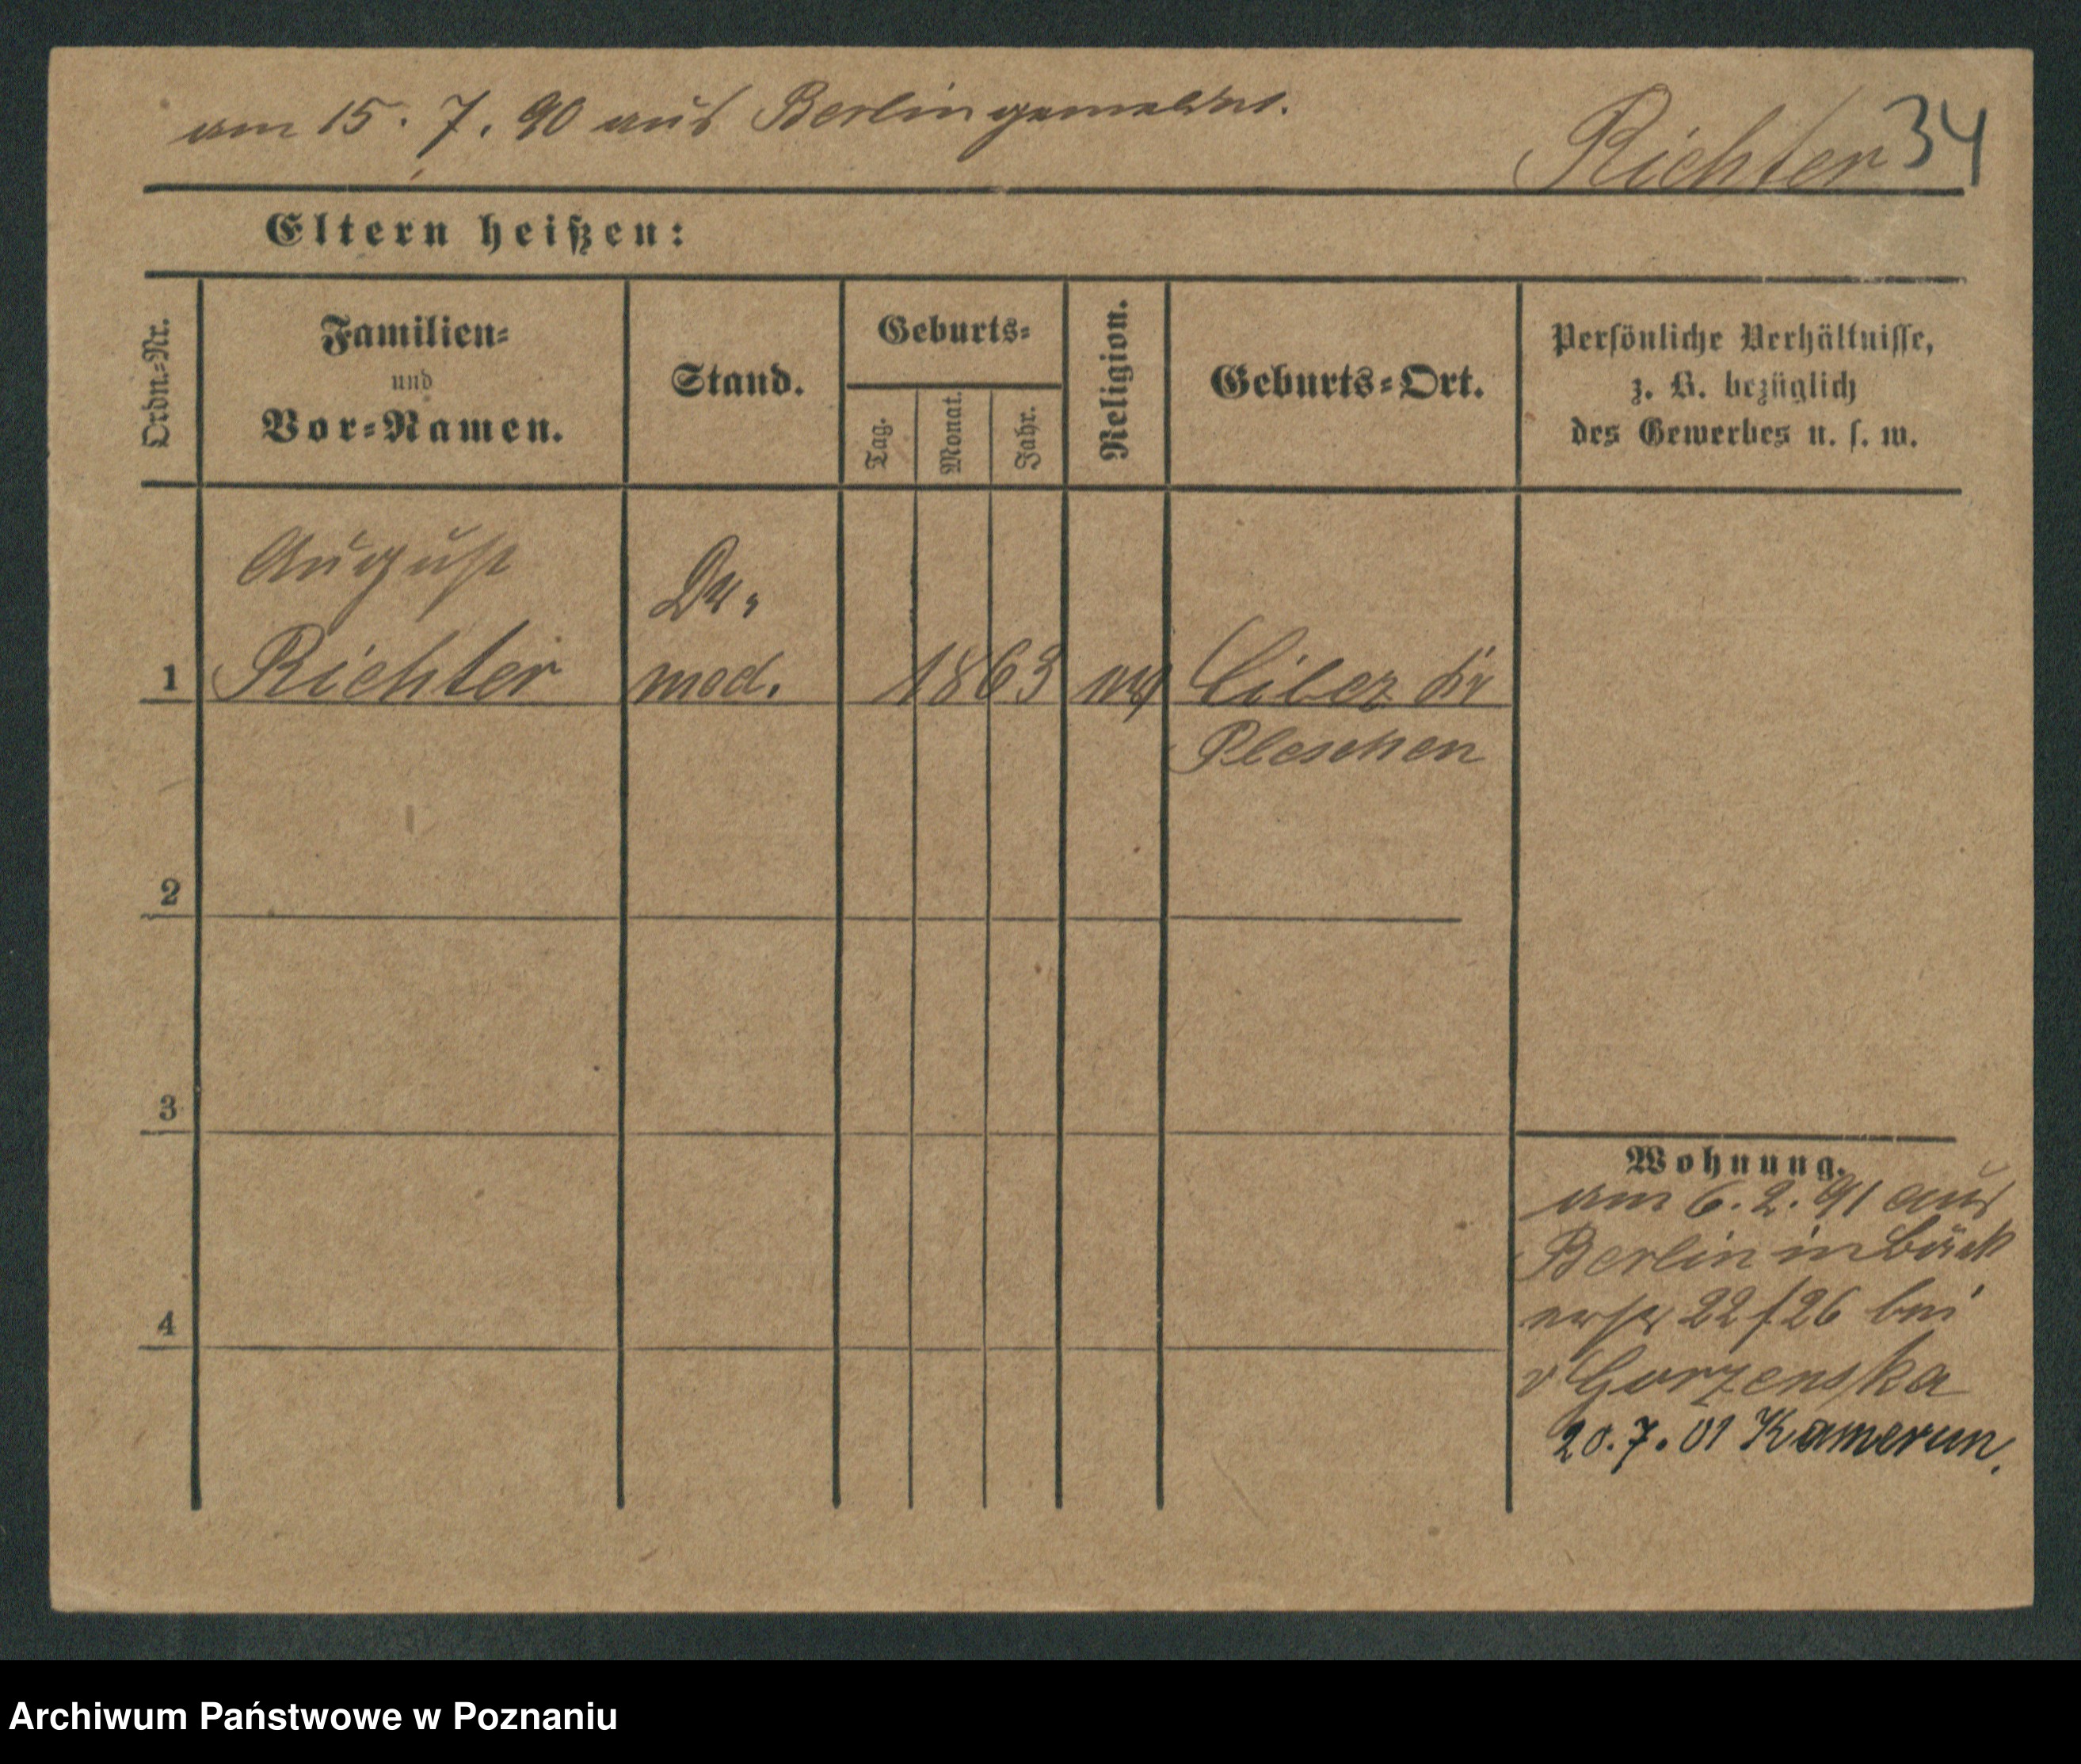 am 15. 7. 90 aus Berlin gemeldet.
Richter 34
Eltern heißen:
Ordn.-Nr.
Familien-
und
Vor-Namen.
Stand.
Geburts-
Tag.
Monat.
Jahr.
Religion.
Geburts-Ort.
Persönliche Verhältnisse,
z. B. bezüglich
des Gewerbes u. s. w.
August
Dr.
1 Richter med. 1863 ev Kr
Pleschen
2
3
4
Wohnung.
am 6. 2. 91 aus
Berlin in Bäck
erstr 22/26 bei
v Gorzenska
20. 7. 01 Kamerun.
Archiwum Państwowe w Poznaniu